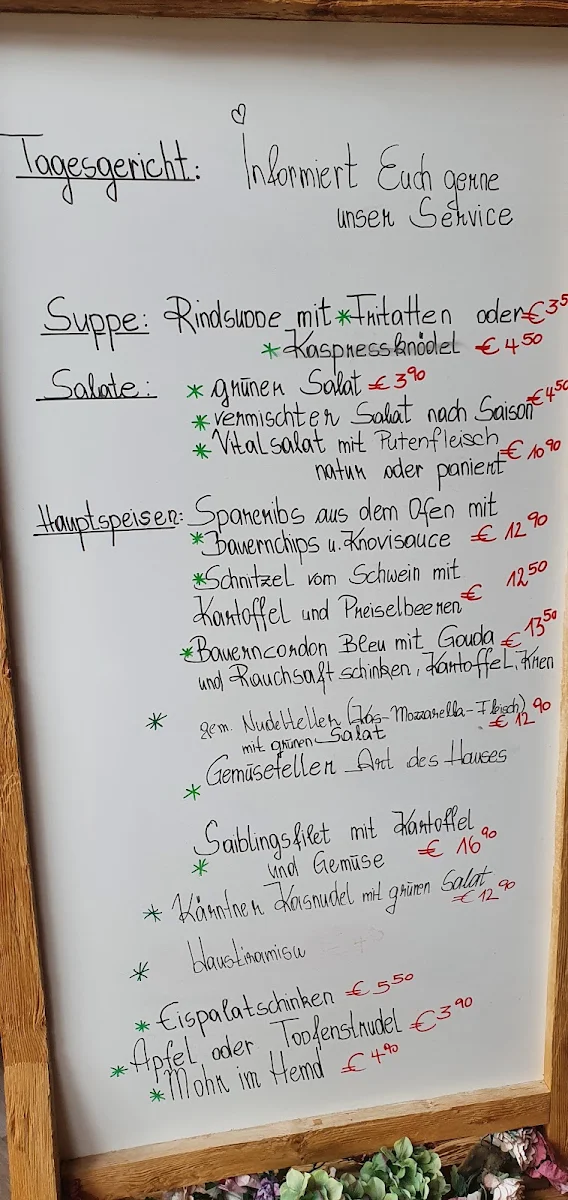 Tagesgericht: Informiert Euch gerne
unser Service
Suppe: Rindsuppe mit *Fritatten oder €3 5
*Kaspressknödel €4 50
Salate: *grünen Salat €3 90
*vermischter Salat nach Saison €4 50
*Vitalsalat mit Putenfleisch
natur oder paniert €10 90
Hauptspeisen: Spareribs aus dem Ofen mit
*Bauernchips u. Knovisauce €12 90
*Schnitzel vom Schwein mit
Kartoffel und Preiselbeeren € 12 50
*Bauerncordon Bleu mit Gouda €13 50
und Rauchsaftschinken, Kartoffel, Kren
* gem. Nudelteller (Kas-Mozzarella-Fleisch)
mit grünen Salat €12 90
* Gemüseteller Art des Hauses
Saiblingsfilet mit Kartoffel
* und Gemüse €16 90
* Kärntner Kasnudel mit grünen Salat
€12 90
* Haustiramisu
* Eispalatschinken €5 50
*Apfel oder Topfenstrudel €3 90
*Mohr im Hemd €4 90